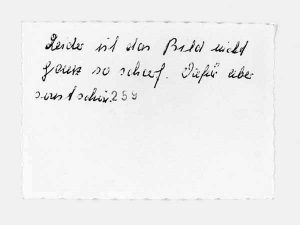 Leider ist das Bild nicht
ganz so scharf. Dafür aber
sonst schön. 259